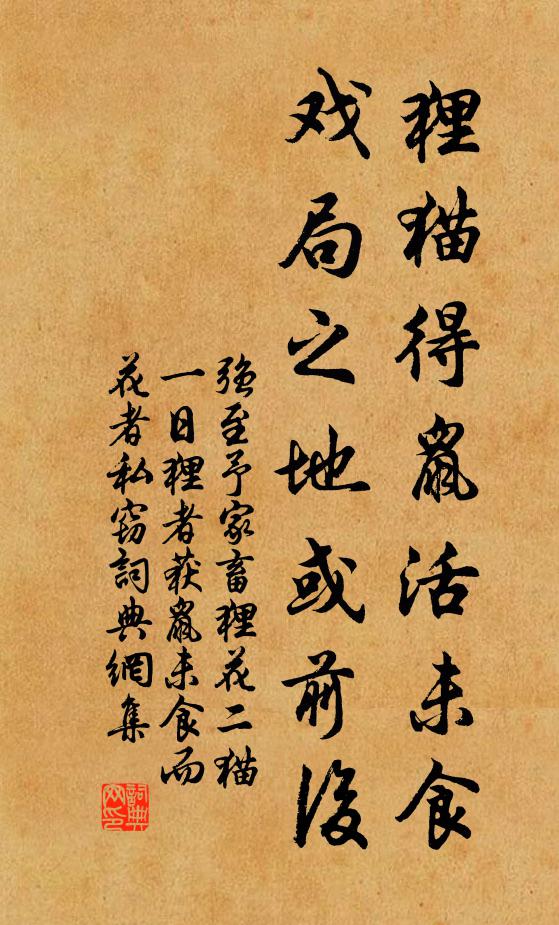 狸猫得鼠活未食
戏局之地或前後
强至予家畜狸花二猫
一日狸者获鼠未食而
花者私窃詞典網集
詞典
网印